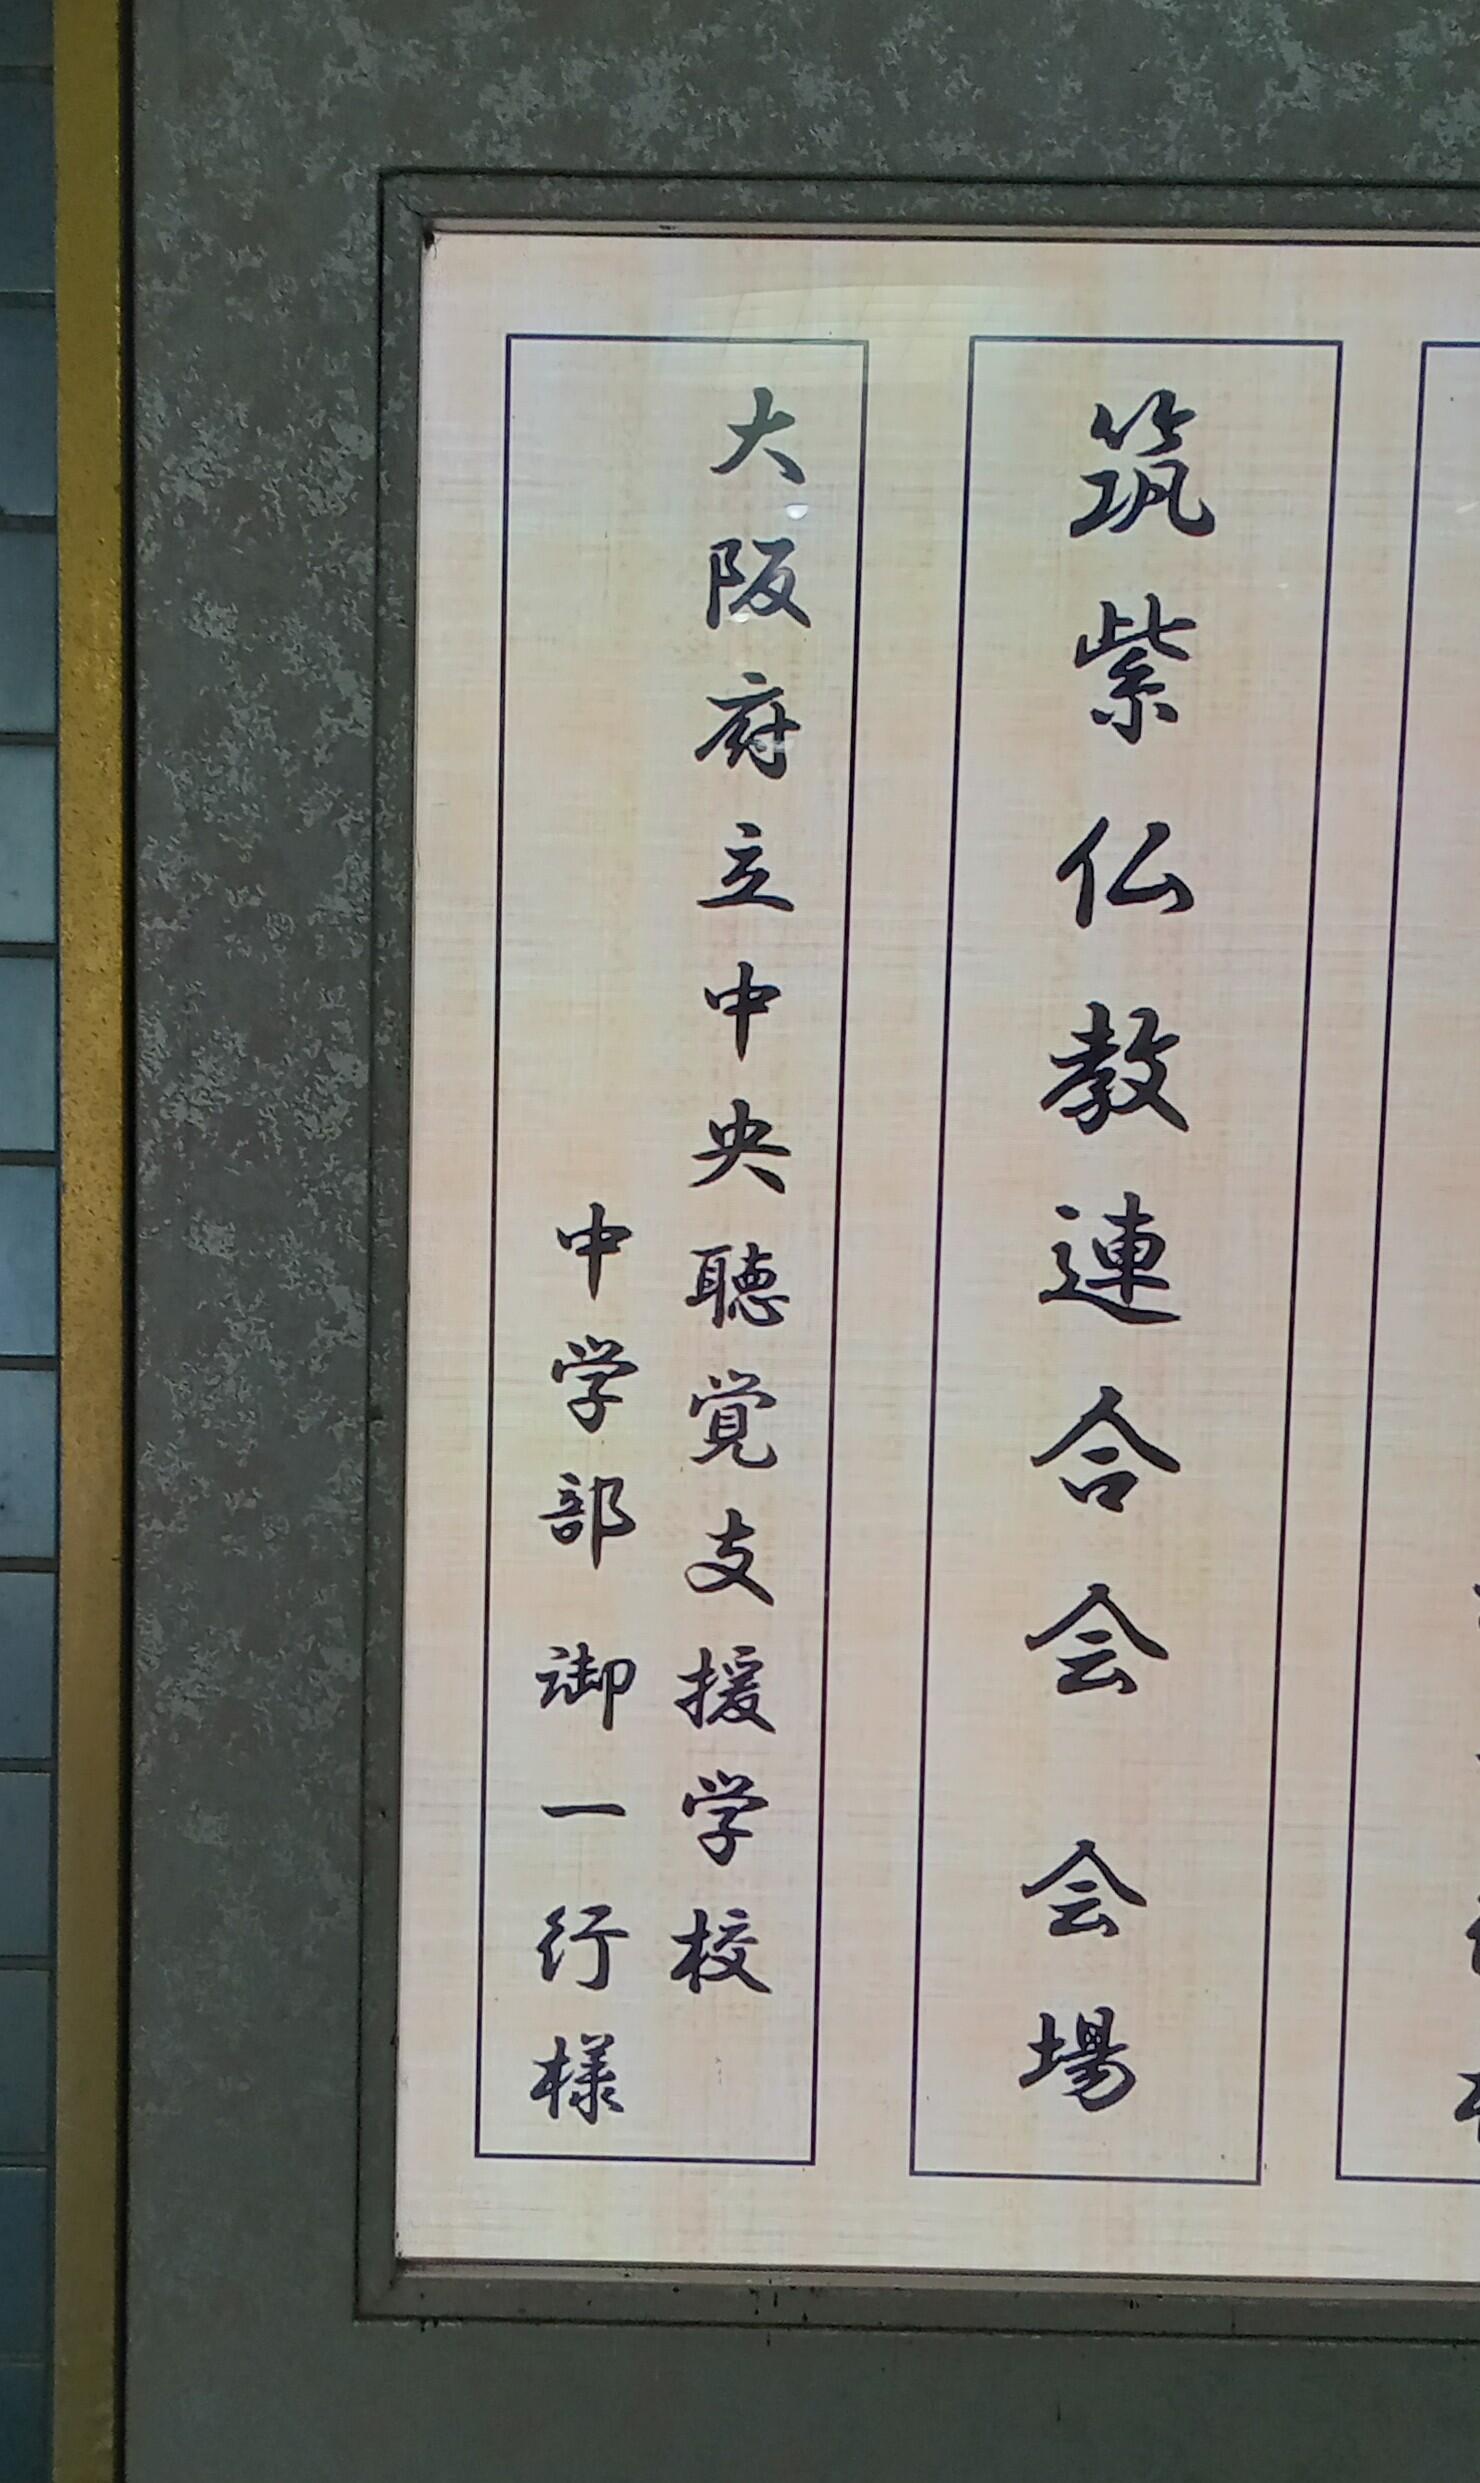 筑紫仏教連合会 会場
大阪府立中央聴覚支援学校
中学部 御一行様